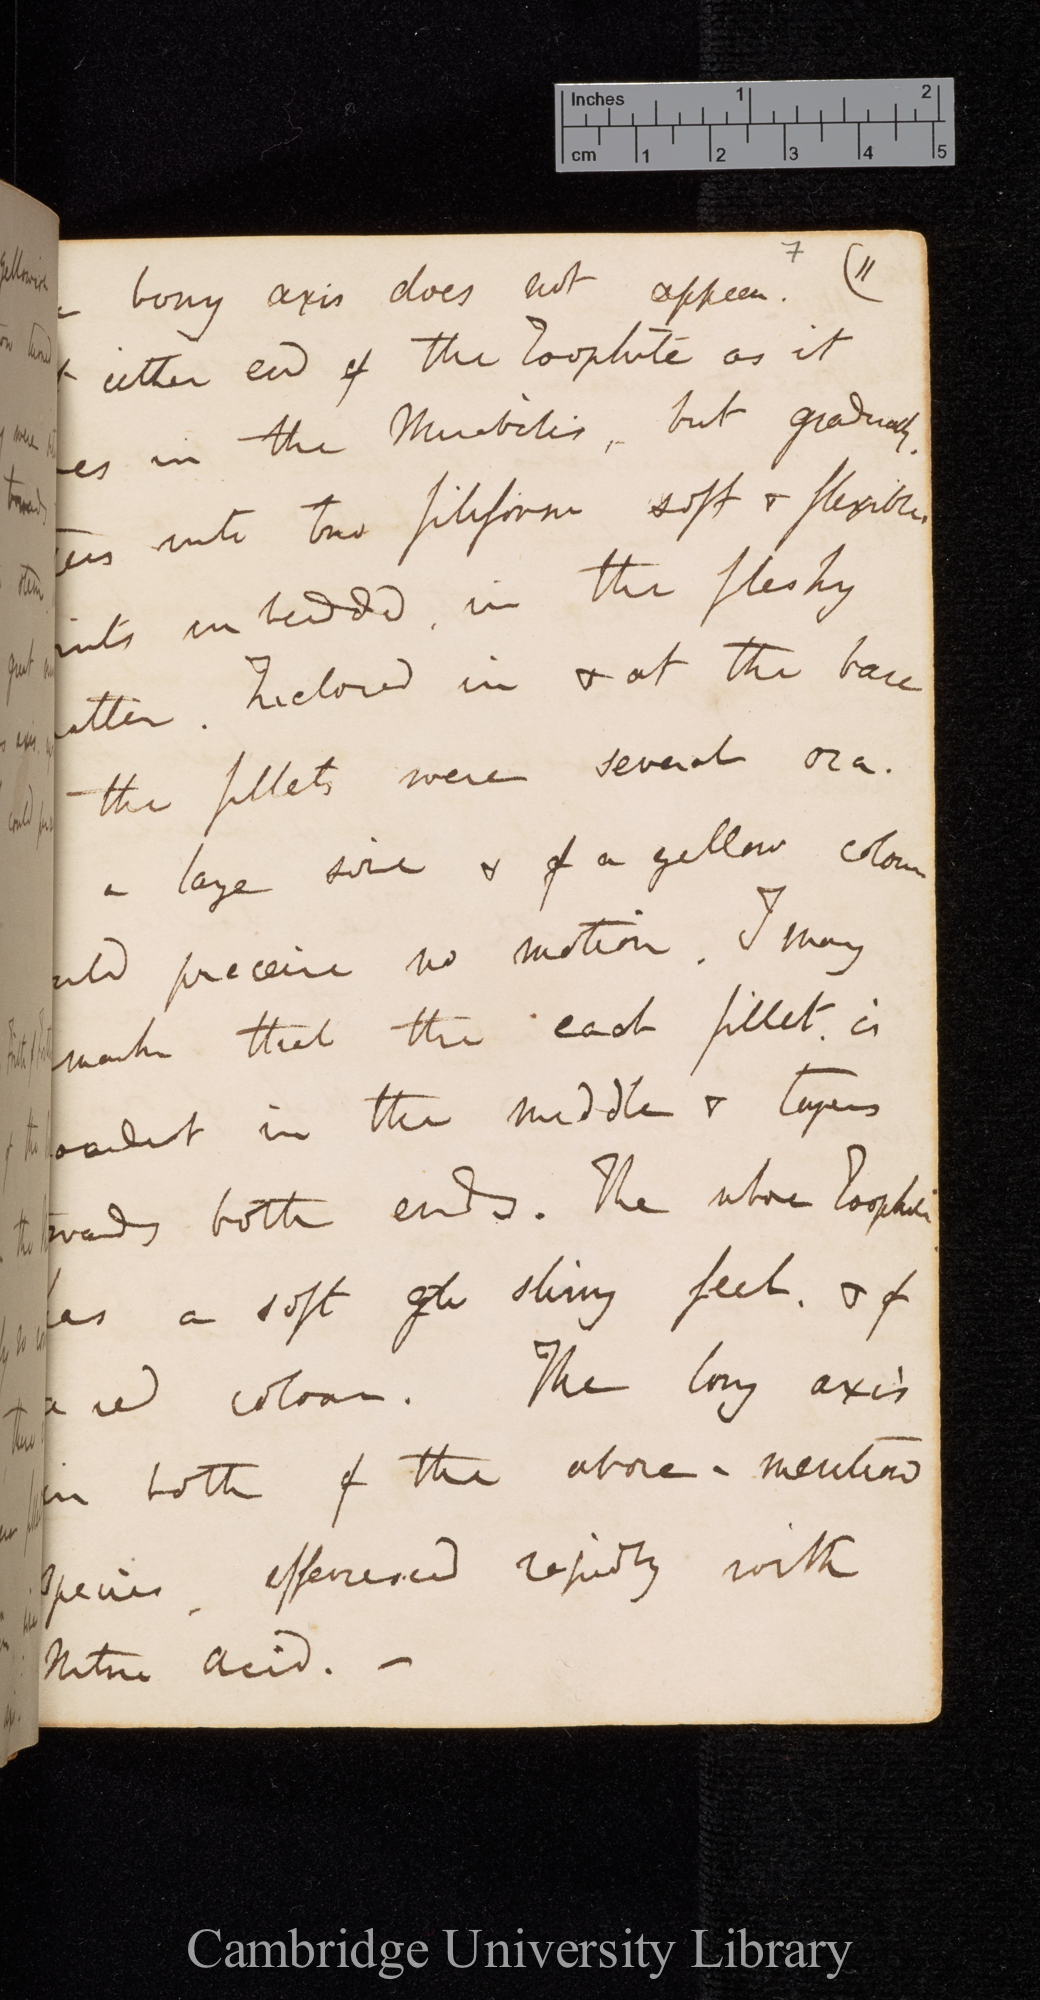 Inches 1 2
cm 1 2 3 4 5
7 (11
bony axis does not appear.
either end of the Zoophite as it
es in the Mirabilis, but gradually,
ers into two filiform soft & flexible
ints imbedded, in the fleshy
atter. Inclosed in & at the base
the fillets were several ova.
a large size & of a yellow colour
uld preceive no motion. I may
mark that the each fillet is
oadest in the middle & tapers
wards both ends. The whole Zoophite
has a soft slimy feel. & of
a red colour. The long axis
in both of the above-mentiond
species, effervesced rapidly with
Nitric acid. —
yellowish
turned
were
towards
stem
great
axis
could
of the
the
there
Cambridge University Library